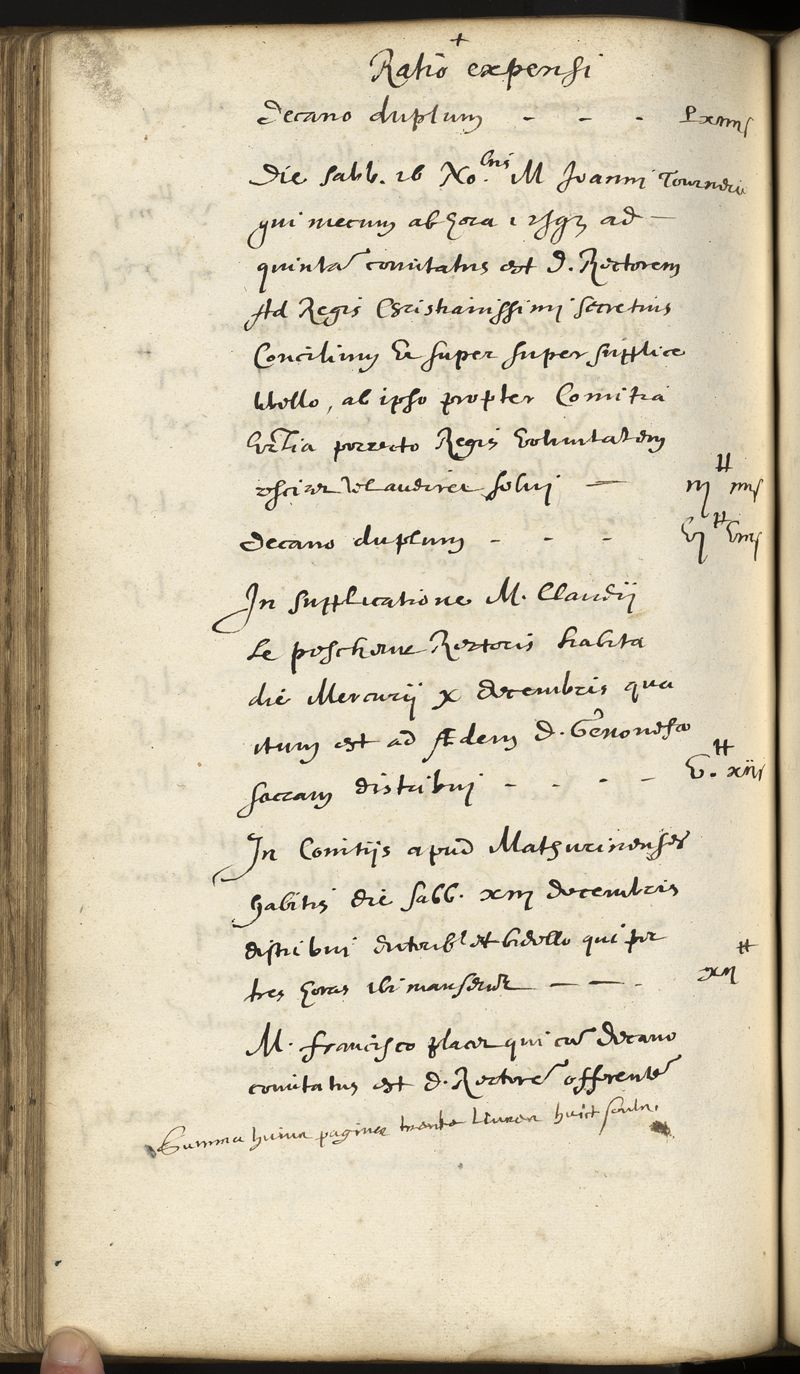 +
Ratio expensi
Decano duplum - - - lxiiiiſ
Die sabb. 26 No.bris M Joanni Tournerie
qui mecum ab hora 1 usq3 ad —
quintā comitatus est D. Rectorem
Ad Regis Christianissimi secretius
Concilium & super super supplice
libello, ab ipso propter Comitia
porrecto Regis voluntatem
solvi — iij ₶ iiiiſ
Decano duplum - - - vj ₶ viijſ
In supplicatione M. Claudij
Le pescheur Rectoris habita
die Mercurij x decembris qua
itum est ad Ædem D. Genovefæ
sacram distribui - - - - v. ₶ xijſ
In Comitijs apud Mathurinenses
habitis die sabb. xiij decembris
distribui et bidello qui per
tres horas ibi manserūt — — - xij ₶
M. francisco placet qui cū Decano
comitatus est D. Rectorē offerentē
Summa huius paginae trente livres huict soulz.